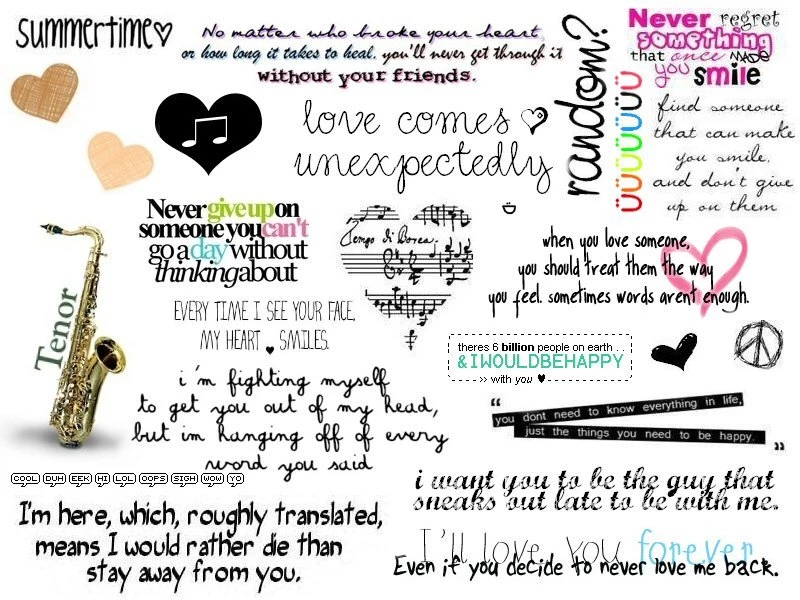 summertime
No matter who broke your heart,
or how long it takes to heal. you'll never get through it
without your friends.
random?
üüüüüüü
Never regret
something
that once MADE
you smile
find someone
that can make
you smile.
and don't give
up on them
love comes
unexpectedly
Never give up on
someone you can't
go a day without
thinking about
Tempo di Borea.
when you love someone,
you should treat them the way
you feel. sometimes words arent enough.
Tenor
EVERY TIME I SEE YOUR FACE,
MY HEART SMILES.
theres 6 billion people on earth . .
& I WOULD BE HAPPY
›› with you ♥
i'm fighting myself
to get you out of my head,
but im hanging off of every
word you said
“
you dont need to know everything in life,
just the things you need to be happy.
”
COOL DUH EEK HI LOL OOPS SIGH WOW YO
i want you to be the guy that
sneaks out late to be with me.
I'm here, which, roughly translated,
means I would rather die than
stay away from you.
I'll love you forever
Even if you decide to never love me back.